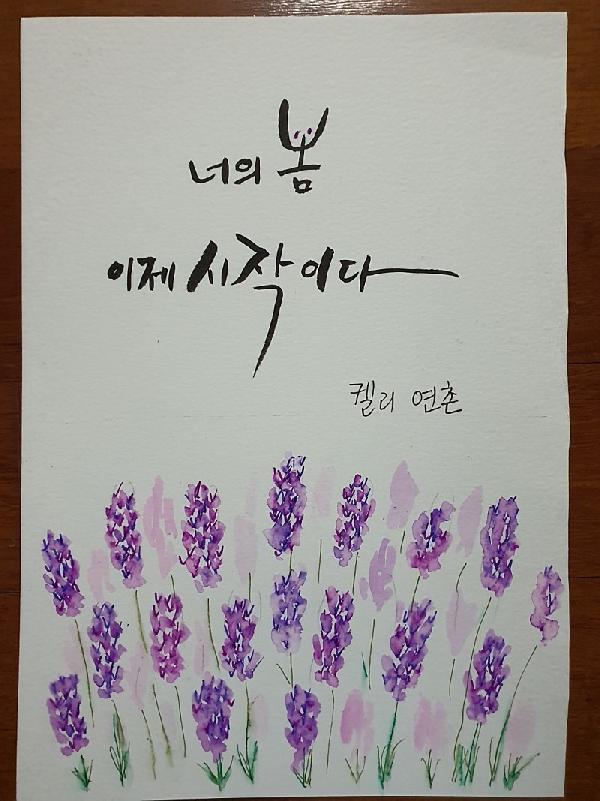 너의 봄
이제 시작이다
켈리 연촌